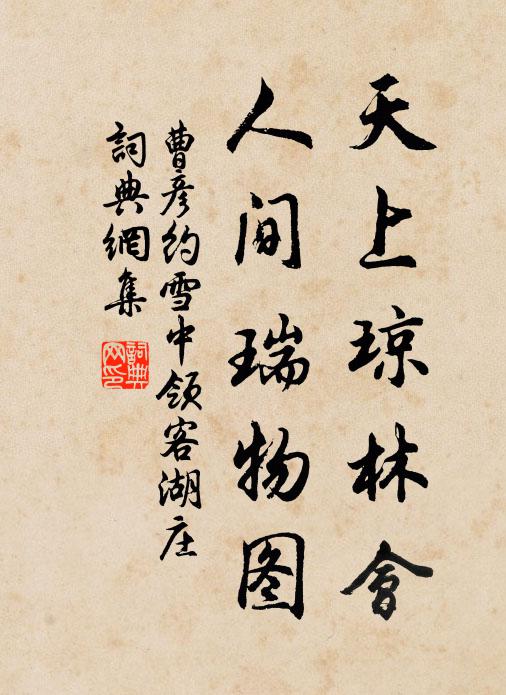 天上琼林會
人间瑞物图
曹彦约雪中领客湖庄
詞典網集
詞典网印